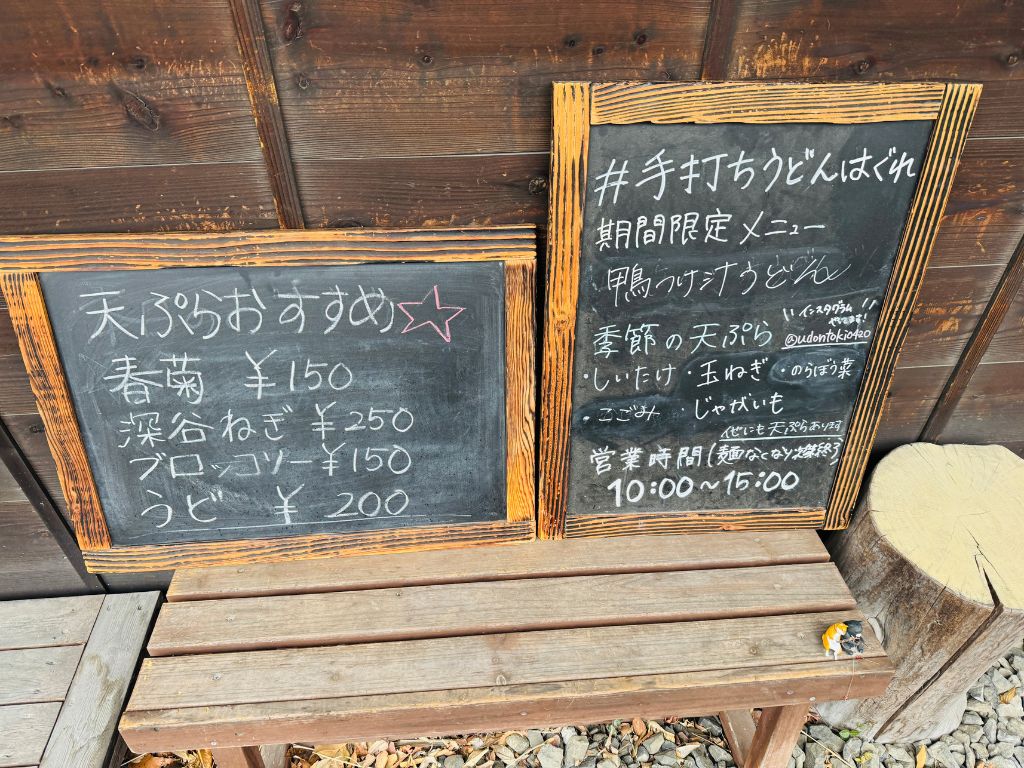 天ぷらおすすめ☆
春菊 ¥150
深谷ねぎ ¥250
ブロッコリー ¥150
うど ¥200
#手打ちうどんはぐれ
期間限定メニュー
鴨つけ汁うどん
インスタグラム
やってます!
@udontokio420
季節の天ぷら
・しいたけ ・玉ねぎ ・のらぼう菜
・こごみ ・じゃがいも
他にも天ぷらあります
営業時間(麺なくなり次第終了)
10:00〜15:00